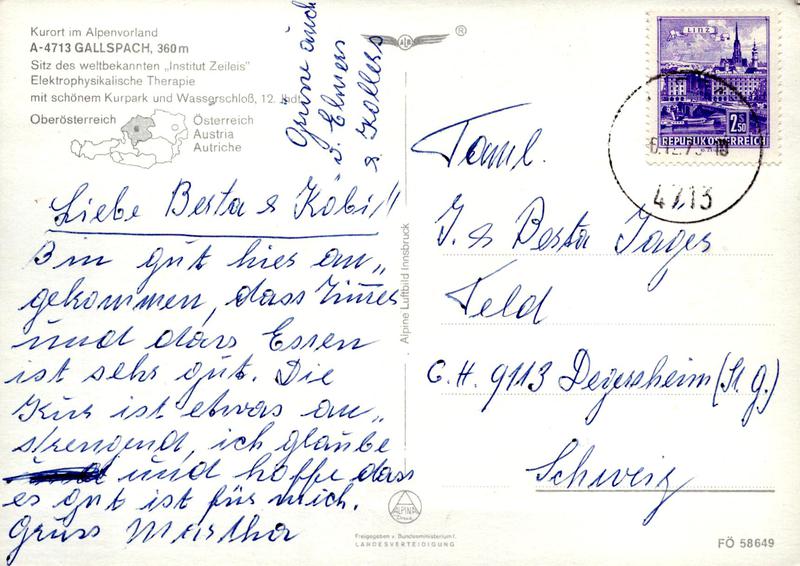 Kurort im Alpenvorland
A-4713 GALLSPACH, 360 m
Sitz des weltbekannten „Institut Zeileis"
Elektrophysikalische Therapie
mit schönem Kurpark und Wasserschloß, 12. Jhd.
Oberösterreich
Österreich
Austria
Autriche
Grüsse auch
v. Elmers
& Kollers
Liebe Berta & Köbi!!
Bin gut hier an„
gekommen, dass Zimer
und dass Essen
ist sehr gut. Die
Kur ist etwas an„
strengend, ich glaube
und hoffe dass
es gut ist für mich.
Gruss Martha
®
Alpine Luftbild Innsbruck
ALPINA
Druck
Freigegeben v. Bundesministerium f.
LANDESVERTEIDIGUNG
LINZ
2.50
REPUBLIK ÖSTERREICH
4713
Faml.
J. & Berta Jager
Feld
C.H. 9113 Degersheim (St. g.)
Schweiz
FÖ 58649